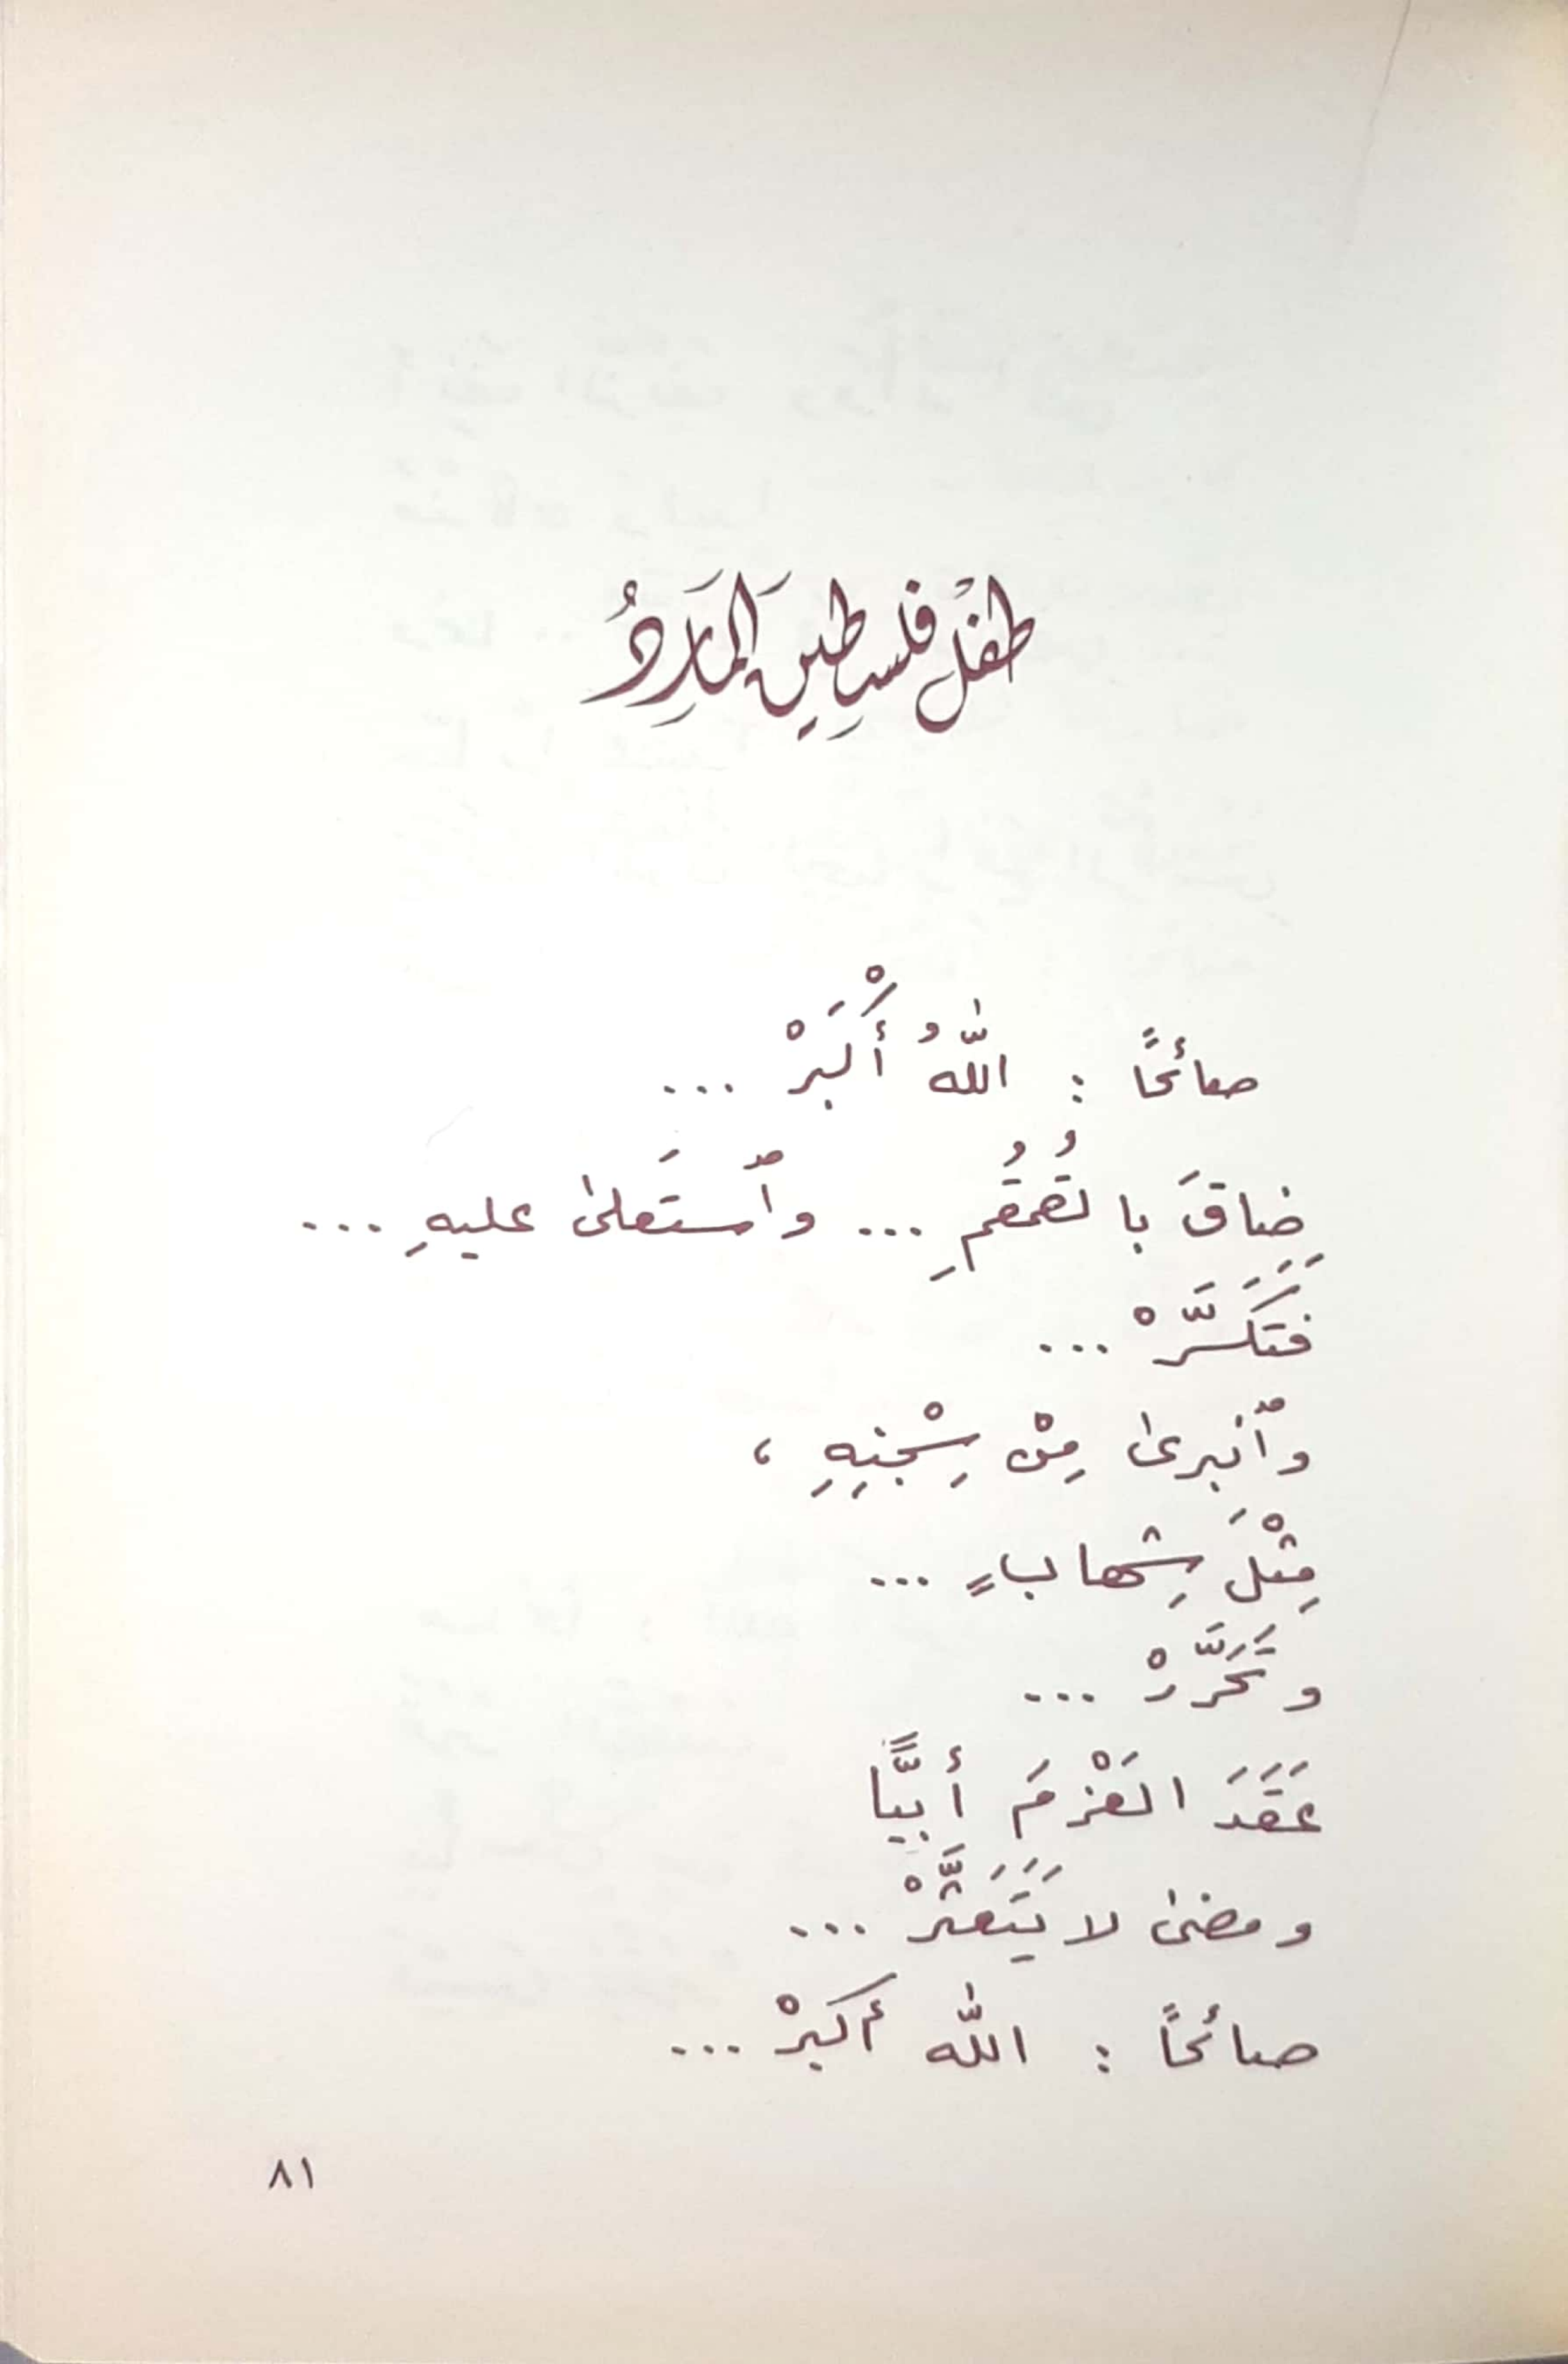 طفلُ فلسطينَ المَارِدُ
صائحًا : اللّٰهُ أَكْبَرْ ...
ضاقَ بالقُمقُمِ ... وٱستَعلىٰ عليهِ ...
فَتَكَسَّرْ ...
وٱنبرىٰ مِنْ سِجْنِهِ ،
مِثْلَ شِهابٍ ...
وتَحَرَّرْ ...
عَقَدَ العَزْمَ أبيًّا
ومضىٰ لا يَتَعَثَّرْ ...
صائحًا : اللّٰه أكبرْ ...
٨١